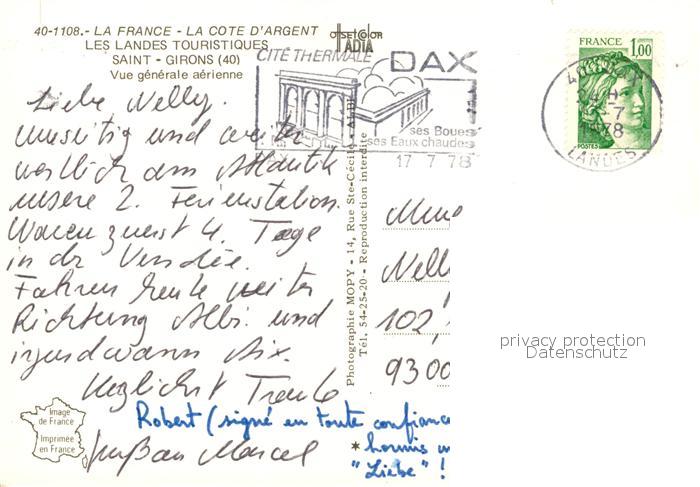 40-1108.- LA FRANCE - LA COTE D'ARGENT
LES LANDES TOURISTIQUES
SAINT - GIRONS (40)
Vue générale aérienne
offset color
IADIA
CITÉ THERMALE DAX
ses Boues
ses Eaux chaudes
17 7 78
FRANCE 1,00
40 DAX
1978
LANDES
POSTES
Liebe Nelly.
und weiter
westlich am Atlantik
unsere 2. Ferienstation.
Waren zuerst 4 Tage
in der Vendée.
Fahren heute weiter
Richtung Albi und
irgendwann Aix.
Herzlichst Traute
Robert (signé en toute confiance
* hormis
"Liebe" !
Gruß an Marcel
Photographie MOPY - 14, Rue Ste-Cécile - ALBI
Tél. 54-25-20 - Reproduction interdite
Mme
Nelly
102,
9300
Image
de France
Imprimée
en France
privacy protection
Datenschutz